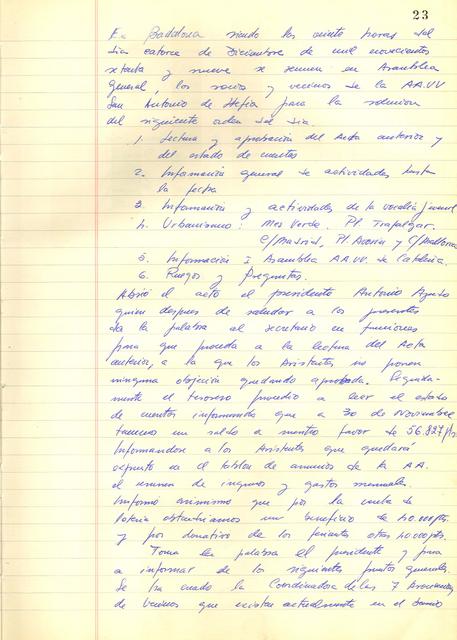 23
En Badalona siendo las veinte horas del
dia catorce de Diciembre de mil novecientos
setenta y nueve se reunen en Asamblea
General, los socios y vecinos de la AA.VV
San Antonio de Llefia para la solucion
del siguiente orden del dia.
1. Lectura y aprobación del Acta anterior y
del estado de cuentas
2. Información general de actividades hasta
la fecha
3. Información y actividades de la vocalia juvenil
4. Urbanismo: Mas Verde. Pl. Trafalgar.
C/Madrid, Pl. y C/Mallorca
5. Información I Asamblea AA.VV. de Cataluña.
6. Ruegos y Preguntas.
Abrió el acto el presidente Antonio
quien despues de saludar a los presentes
da la palabra al secretario en funciones
para que proceda a la lectura del Acta
anterior, a la que los Asistentes no ponen
ninguna objeción quedando aprobada. Seguida-
mente el tesorero procedio a leer el estado
de cuentas informando que a 30 de Noviembre
tenemos un saldo a nuestro favor de 56.827 pts.
Informandose a los Asistentes que quedará
expuesto en el tablon de anuncios de la AA.
el resumen de ingresos y gastos mensuales.
Informo asimismo que por la venta de
loteria obtendriamos un beneficio de 40.000pts
y por donativo de los feriantes otras 40.000pts.
Toma la palabra el presidente y pasa
a informar de los siguientes puntos generales.
Se ha creado la Coordinadora de las 7 Asociaciones
de Vecinos que existen actualmente en el barrio